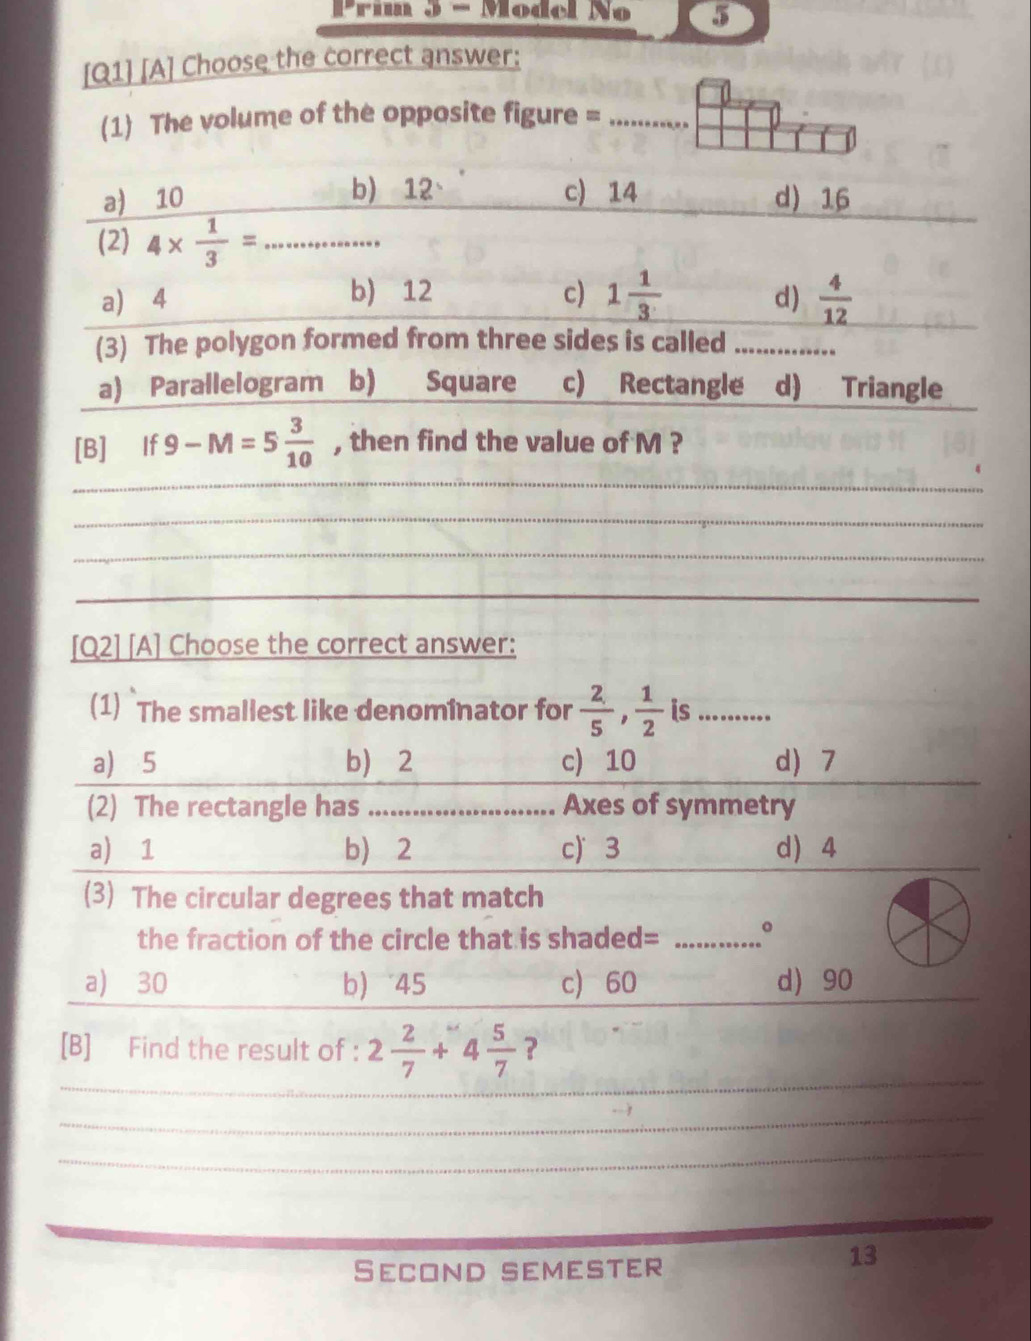 Prim 3 - Model No 5
[Q1] [A] Choose the correct answer:
(1) The volume of the opposite figure = ...........
a) 10 b) 12 c) 14 d) 16
(2) 4 × 1/3 = ................
a) 4 b) 12 c) 1 1/3 d) 4/12
(3) The polygon formed from three sides is called ..............
a) Parallelogram b) Square c) Rectangle d) Triangle
[B] If 9 – M = 5 3/10 , then find the value of M ?
[Q2] [A] Choose the correct answer:
(1) The smallest like denominator for 2/5 , 1/2 is ..........
a) 5 b) 2 c) 10 d) 7
(2) The rectangle has .......................... Axes of symmetry
a) 1 b) 2 c) 3 d) 4
(3) The circular degrees that match
the fraction of the circle that is shaded= ............°
a) 30 b) 45 c) 60 d) 90
[B] Find the result of : 2 2/7 + 4 5/7 ?
SECOND SEMESTER 13